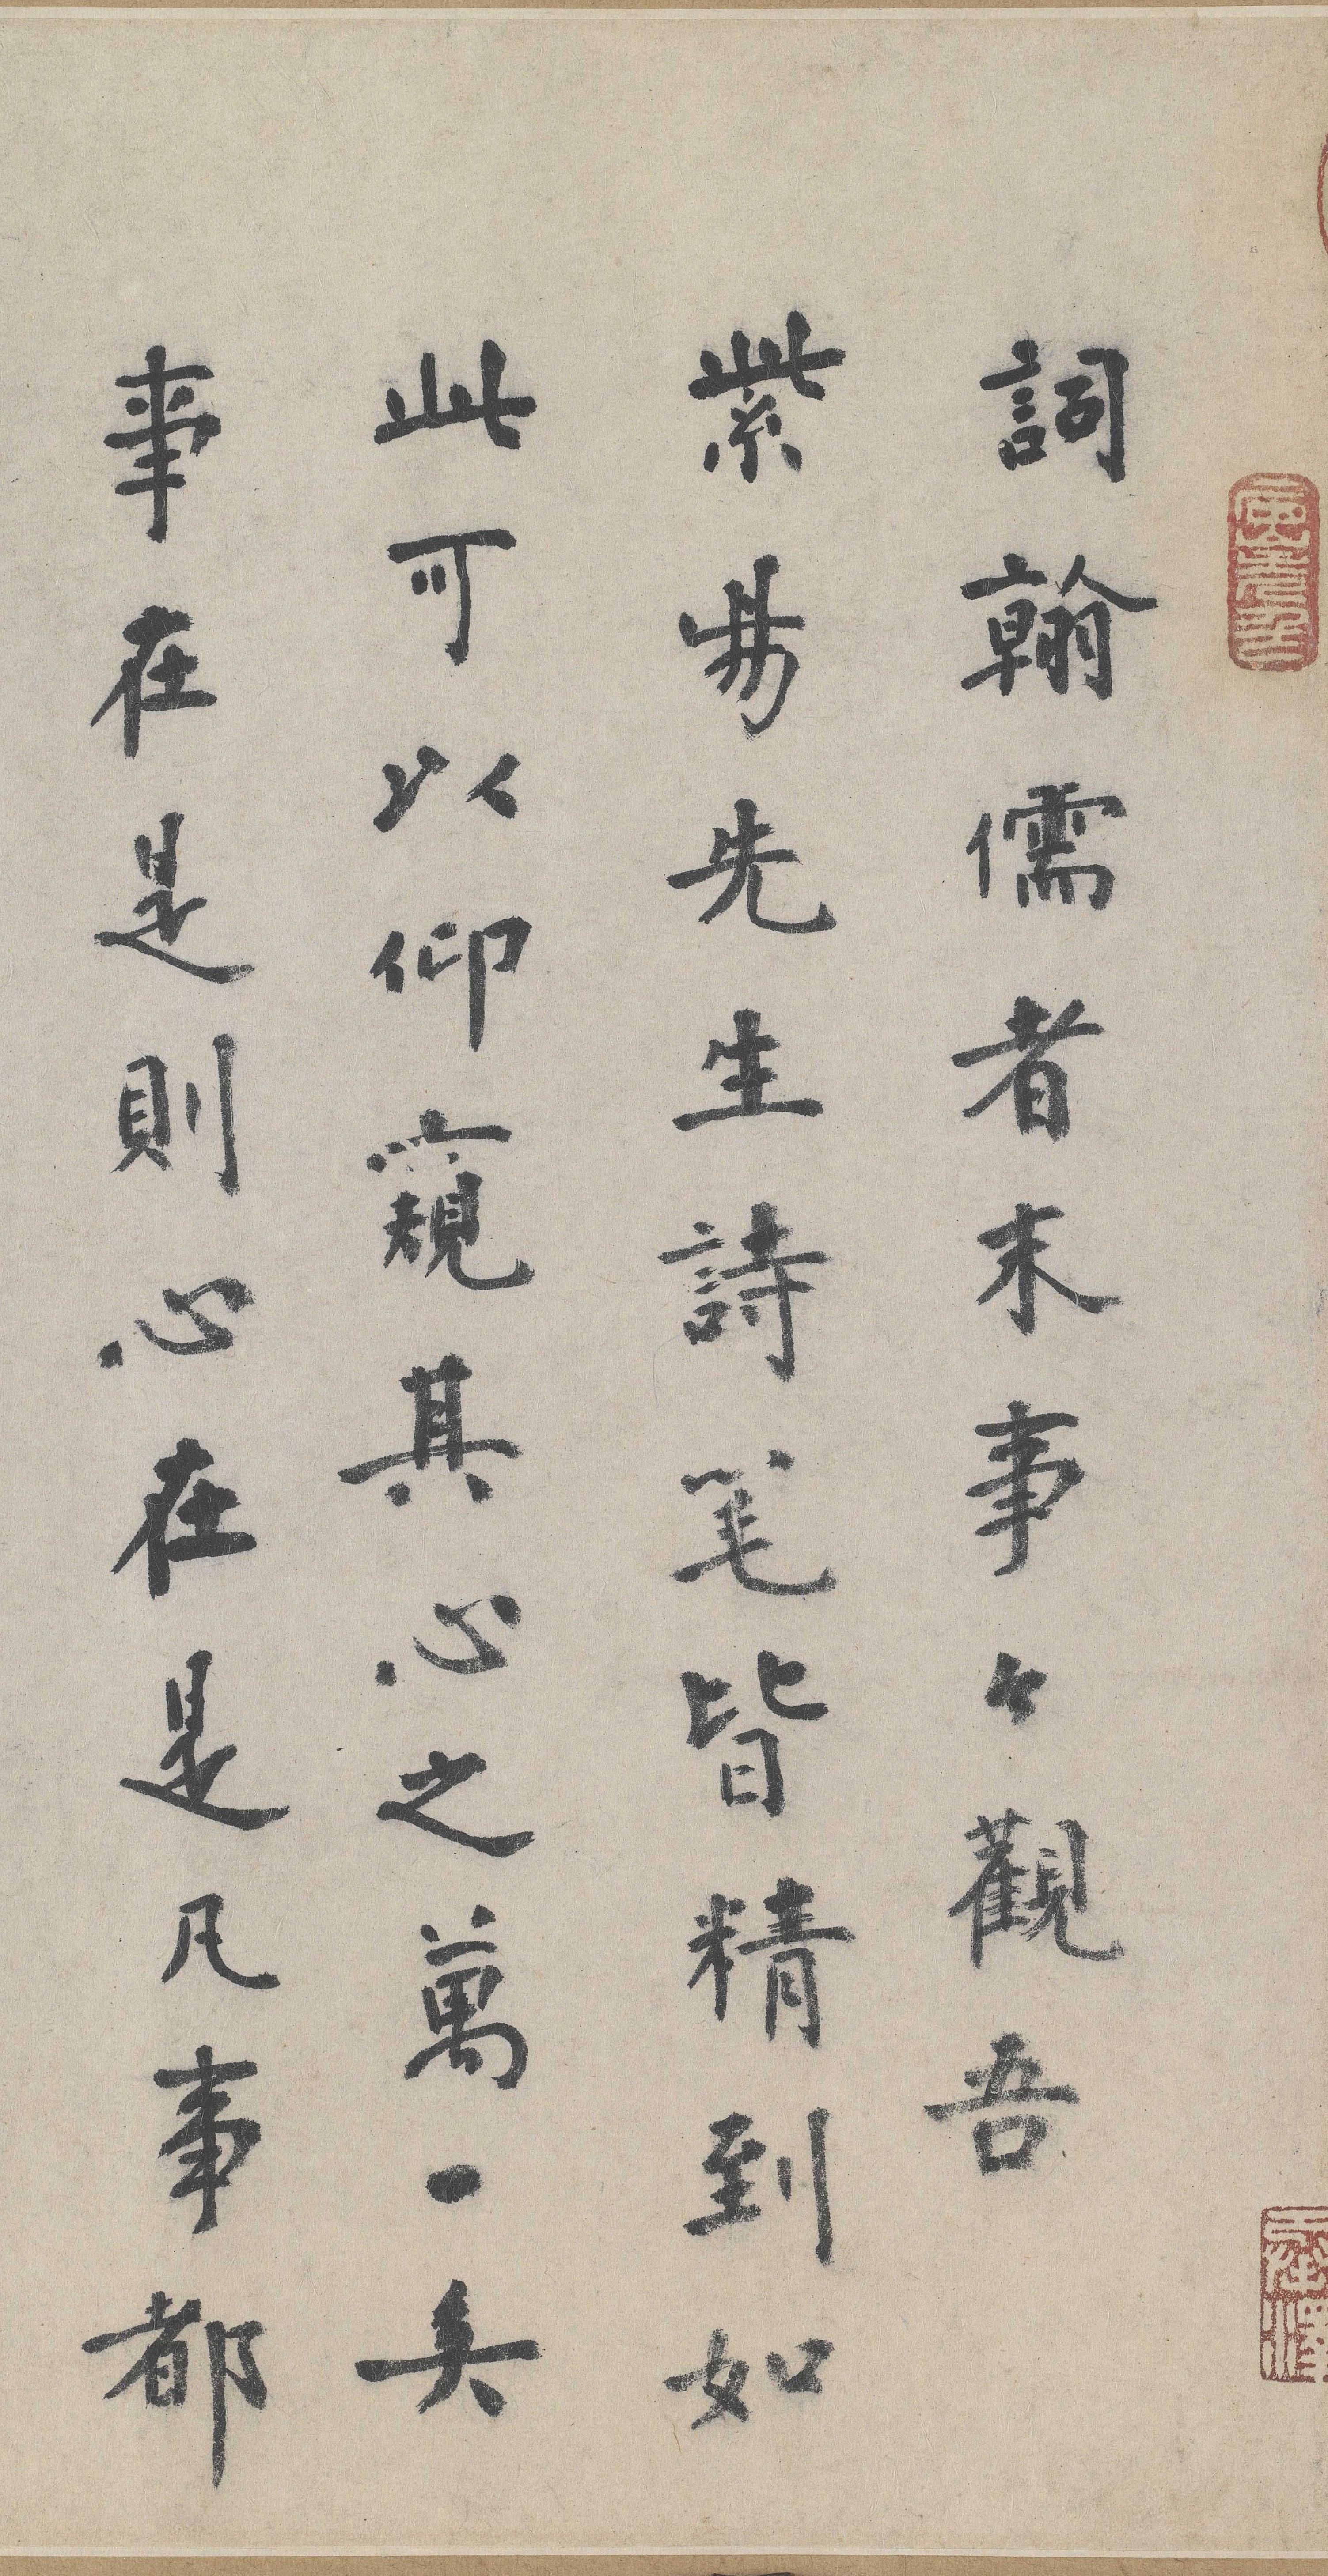 詞翰儒者末事々觀吾
紫先生詩笔皆精到如
此可以仰窺其心之萬一矣
事在是則心在是凡事都